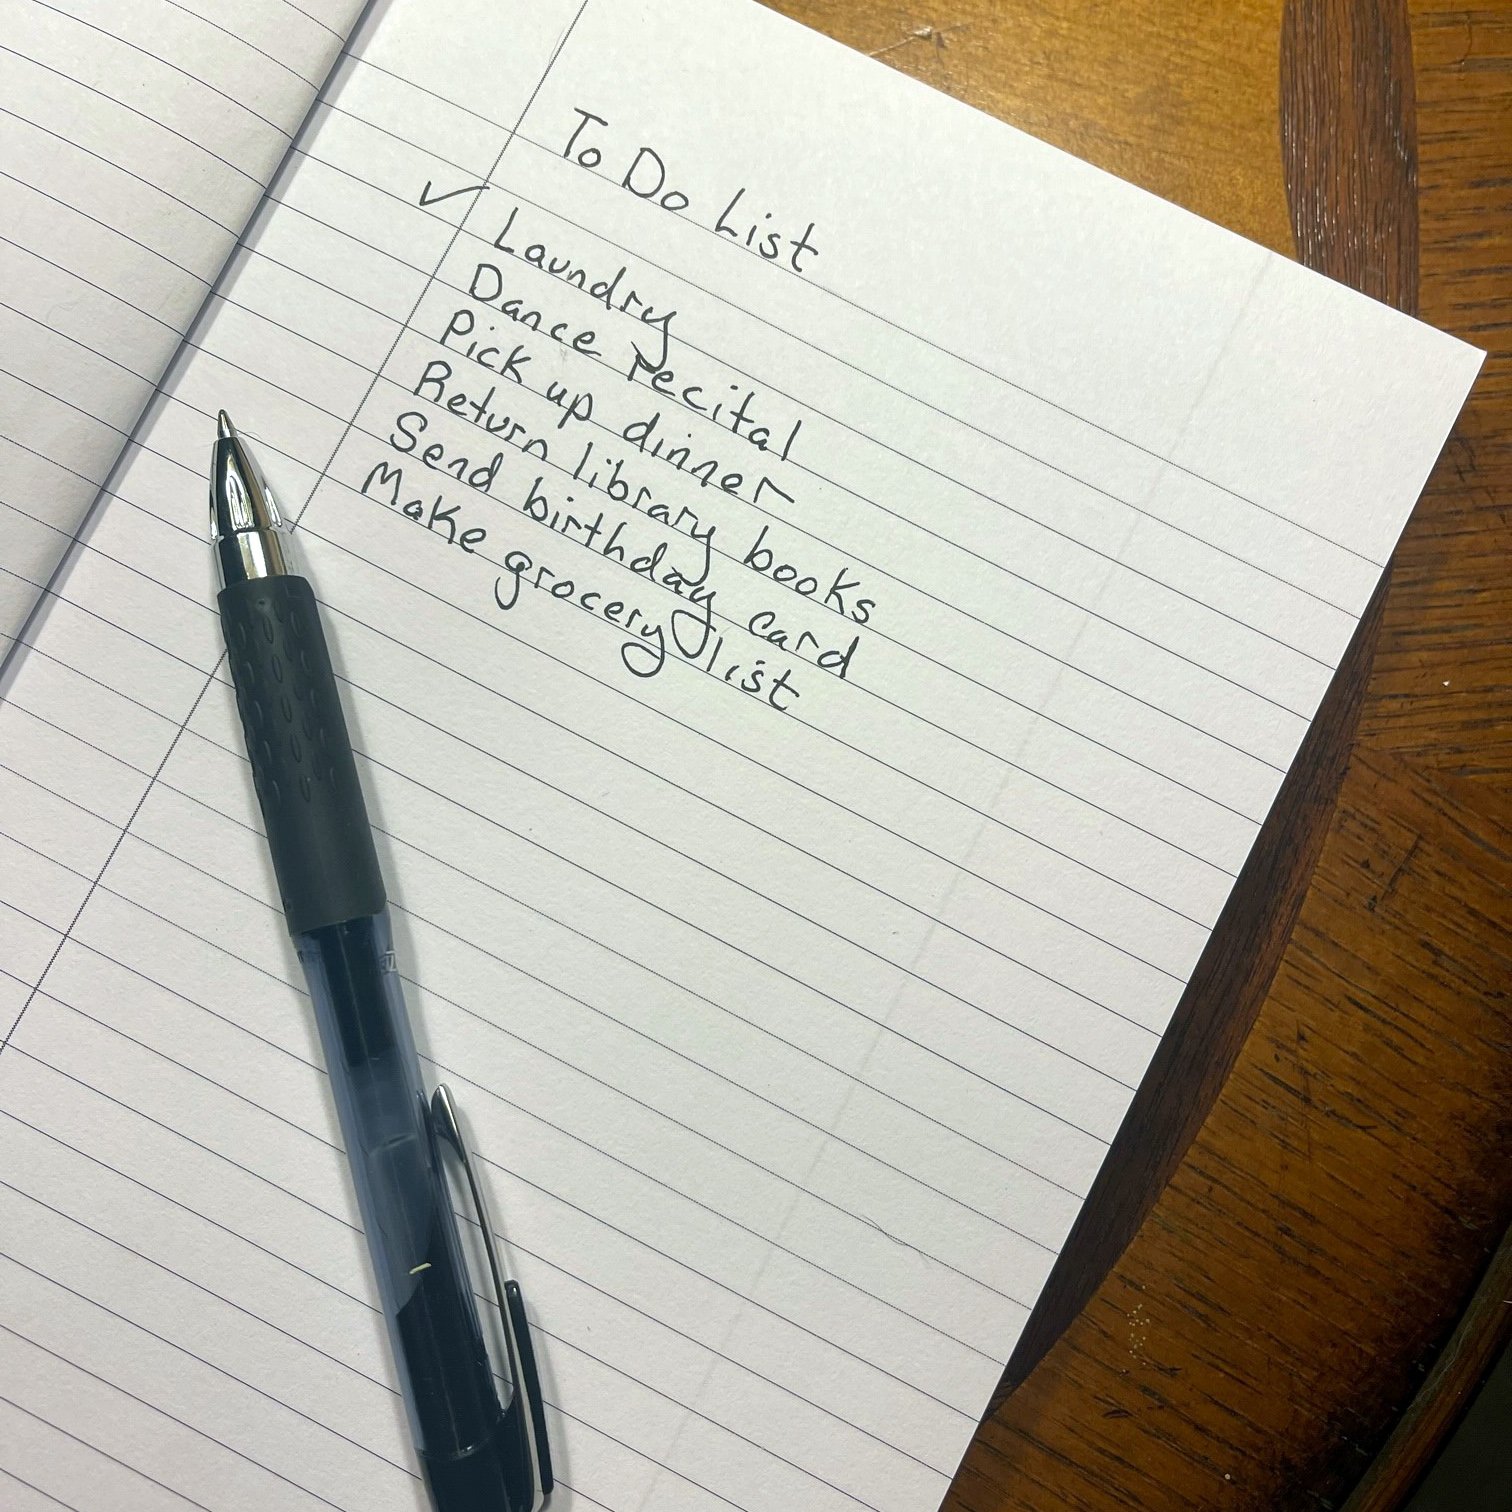 To Do List
✓ Laundry
Dance recital
Pick up dinner
Return library books
Send birthday card
Make grocery list